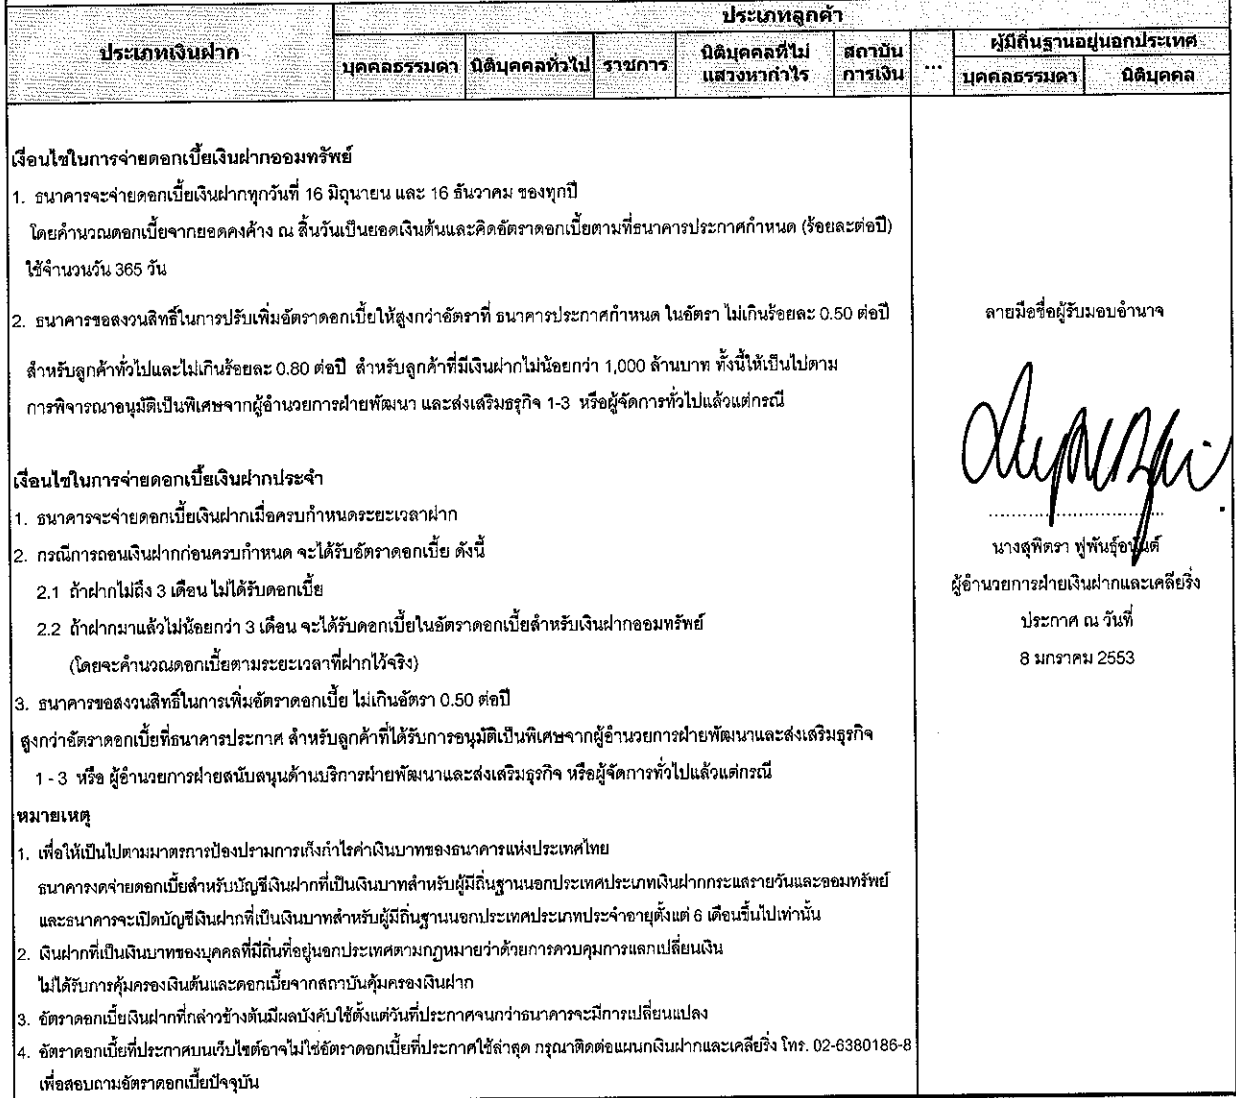 ประเภทลูกค้า
ประเภทเงินฝาก
บุคคลธรรมดา นิติบุคคลทั่วไป ราชการ นิติบุคคลที่ไม่แสวงหากำไร สถาบันการเงิน ... ผู้มีถิ่นฐานอยู่นอกประเทศ
บุคคลธรรมดา นิติบุคคล
เงื่อนไขในการจ่ายดอกเบี้ยเงินฝากออมทรัพย์
1. ธนาคารจะจ่ายดอกเบี้ยเงินฝากทุกวันที่ 16 มิถุนายน และ 16 ธันวาคม ของทุกปี
โดยคำนวณดอกเบี้ยจากยอดคงค้าง ณ สิ้นวันเป็นยอดเงินต้นและคิดอัตราดอกเบี้ยตามที่ธนาคารประกาศกำหนด (ร้อยละต่อปี)
ใช้จำนวนวัน 365 วัน
2. ธนาคารขอสงวนสิทธิ์ในการปรับเพิ่มอัตราดอกเบี้ยให้สูงกว่าอัตราที่ ธนาคารประกาศกำหนด ในอัตรา ไม่เกินร้อยละ 0.50 ต่อปี
สำหรับลูกค้าทั่วไปและไม่เกินร้อยละ 0.80 ต่อปี สำหรับลูกค้าที่มีเงินฝากไม่น้อยกว่า 1,000 ล้านบาท ทั้งนี้ให้เป็นไปตาม
การพิจารณาอนุมัติเป็นพิเศษจากผู้อำนวยการฝ่ายพัฒนา และส่งเสริมธุรกิจ 1-3 หรือผู้จัดการทั่วไปแล้วแต่กรณี
เงื่อนไขในการจ่ายดอกเบี้ยเงินฝากประจำ
1. ธนาคารจะจ่ายดอกเบี้ยเงินฝากเมื่อครบกำหนดระยะเวลาฝาก
2. กรณีการถอนเงินฝากก่อนครบกำหนด จะได้รับอัตราดอกเบี้ย ดังนี้
2.1 ถ้าฝากไม่ถึง 3 เดือน ไม่ได้รับดอกเบี้ย
2.2 ถ้าฝากมาแล้วไม่น้อยกว่า 3 เดือน จะได้รับดอกเบี้ยในอัตราดอกเบี้ยสำหรับเงินฝากออมทรัพย์
(โดยจะคำนวณดอกเบี้ยตามระยะเวลาที่ฝากไว้จริง)
3. ธนาคารขอสงวนสิทธิ์ในการเพิ่มอัตราดอกเบี้ย ไม่เกินอัตรา 0.50 ต่อปี
สูงกว่าอัตราดอกเบี้ยที่ธนาคารประกาศ สำหรับลูกค้าที่ได้รับการอนุมัติเป็นพิเศษจากผู้อำนวยการฝ่ายพัฒนาและส่งเสริมธุรกิจ
1 - 3 หรือ ผู้อำนวยการฝ่ายสนับสนุนด้านบริการฝ่ายพัฒนาและส่งเสริมธุรกิจ หรือผู้จัดการทั่วไปแล้วแต่กรณี
หมายเหตุ
1. เพื่อให้เป็นไปตามมาตรการป้องปรามการเก็งกำไรค่าเงินบาทของธนาคารแห่งประเทศไทย
ธนาคารงดจ่ายดอกเบี้ยสำหรับบัญชีเงินฝากที่เป็นเงินบาทสำหรับผู้มีถิ่นฐานนอกประเทศประเภทเงินฝากกระแสรายวันและออมทรัพย์
และธนาคารจะเปิดบัญชีเงินฝากที่เป็นเงินบาทสำหรับผู้มีถิ่นฐานนอกประเทศประเภทประจำอายุตั้งแต่ 6 เดือนขึ้นไปเท่านั้น
2. เงินฝากที่เป็นเงินบาทของบุคคลที่มีถิ่นที่อยู่นอกประเทศตามกฎหมายว่าด้วยการควบคุมการแลกเปลี่ยนเงิน
ไม่ได้รับการคุ้มครองเงินต้นและดอกเบี้ยจากสถาบันคุ้มครองเงินฝาก
3. อัตราดอกเบี้ยเงินฝากที่กล่าวข้างต้นมีผลบังคับใช้ตั้งแต่วันที่ประกาศจนกว่าธนาคารจะมีการเปลี่ยนแปลง
4. อัตราดอกเบี้ยที่ประกาศบนเว็บไซต์อาจไม่ใช่อัตราดอกเบี้ยที่ประกาศใช้ล่าสุด กรุณาติดต่อแผนกเงินฝากและเคลียริ่ง โทร. 02-6380186-8
เพื่อสอบถามอัตราดอกเบี้ยปัจจุบัน
ลายมือชื่อผู้รับมอบอำนาจ
นางสุพิตรา ฟูพันธุ์อนันต์
ผู้อำนวยการฝ่ายเงินฝากและเคลียริ่ง
ประกาศ ณ วันที่
8 มกราคม 2553